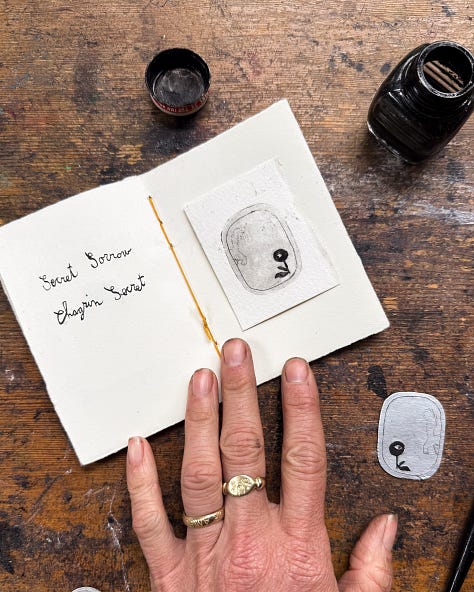 Secret Sorrow
Chagrin Secret